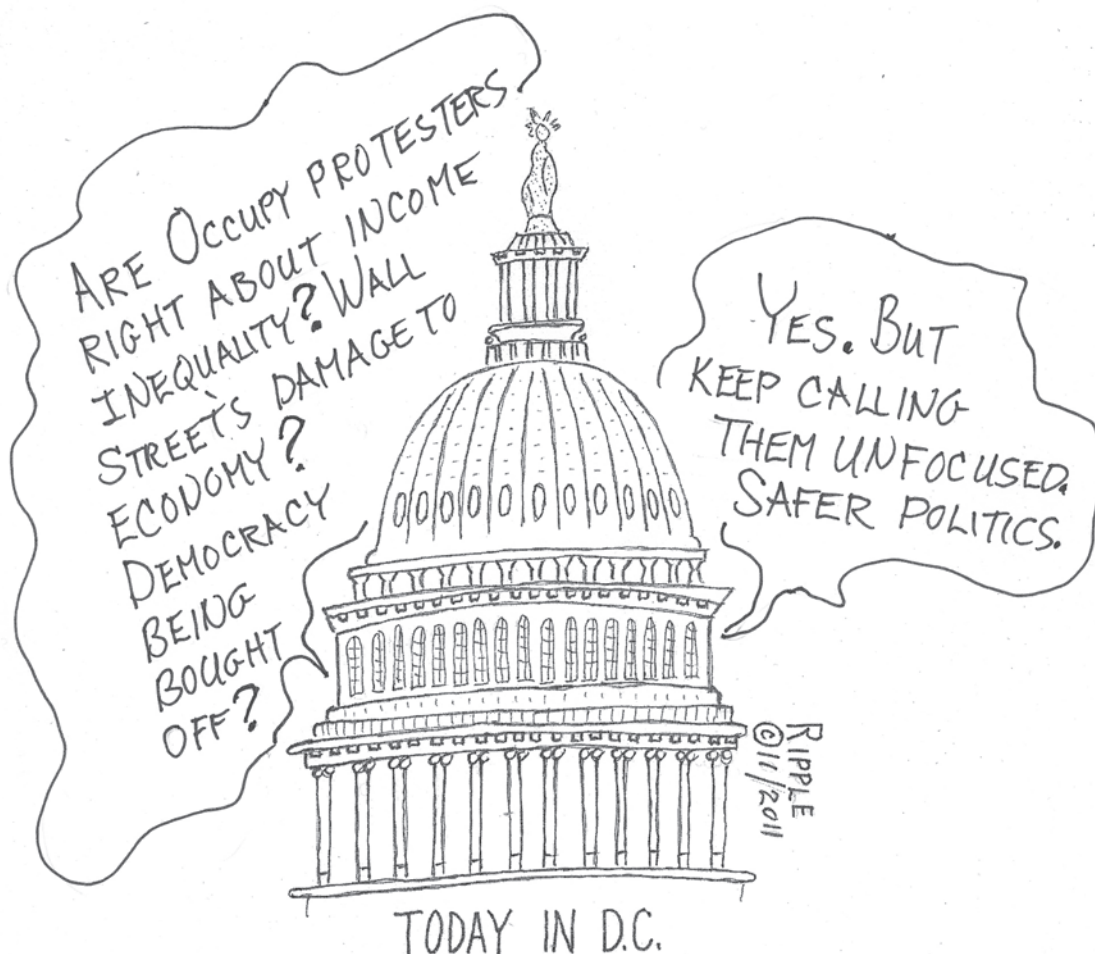 ARE OCCUPY PROTESTERS
RIGHT ABOUT INCOME
INEQUALITY? WALL
STREET'S DAMAGE TO
ECONOMY?
DEMOCRACY
BEING
BOUGHT
OFF?
YES. BUT
KEEP CALLING
THEM UNFOCUSED.
SAFER POLITICS.
RIPPLE
©11/2011
TODAY IN D.C.